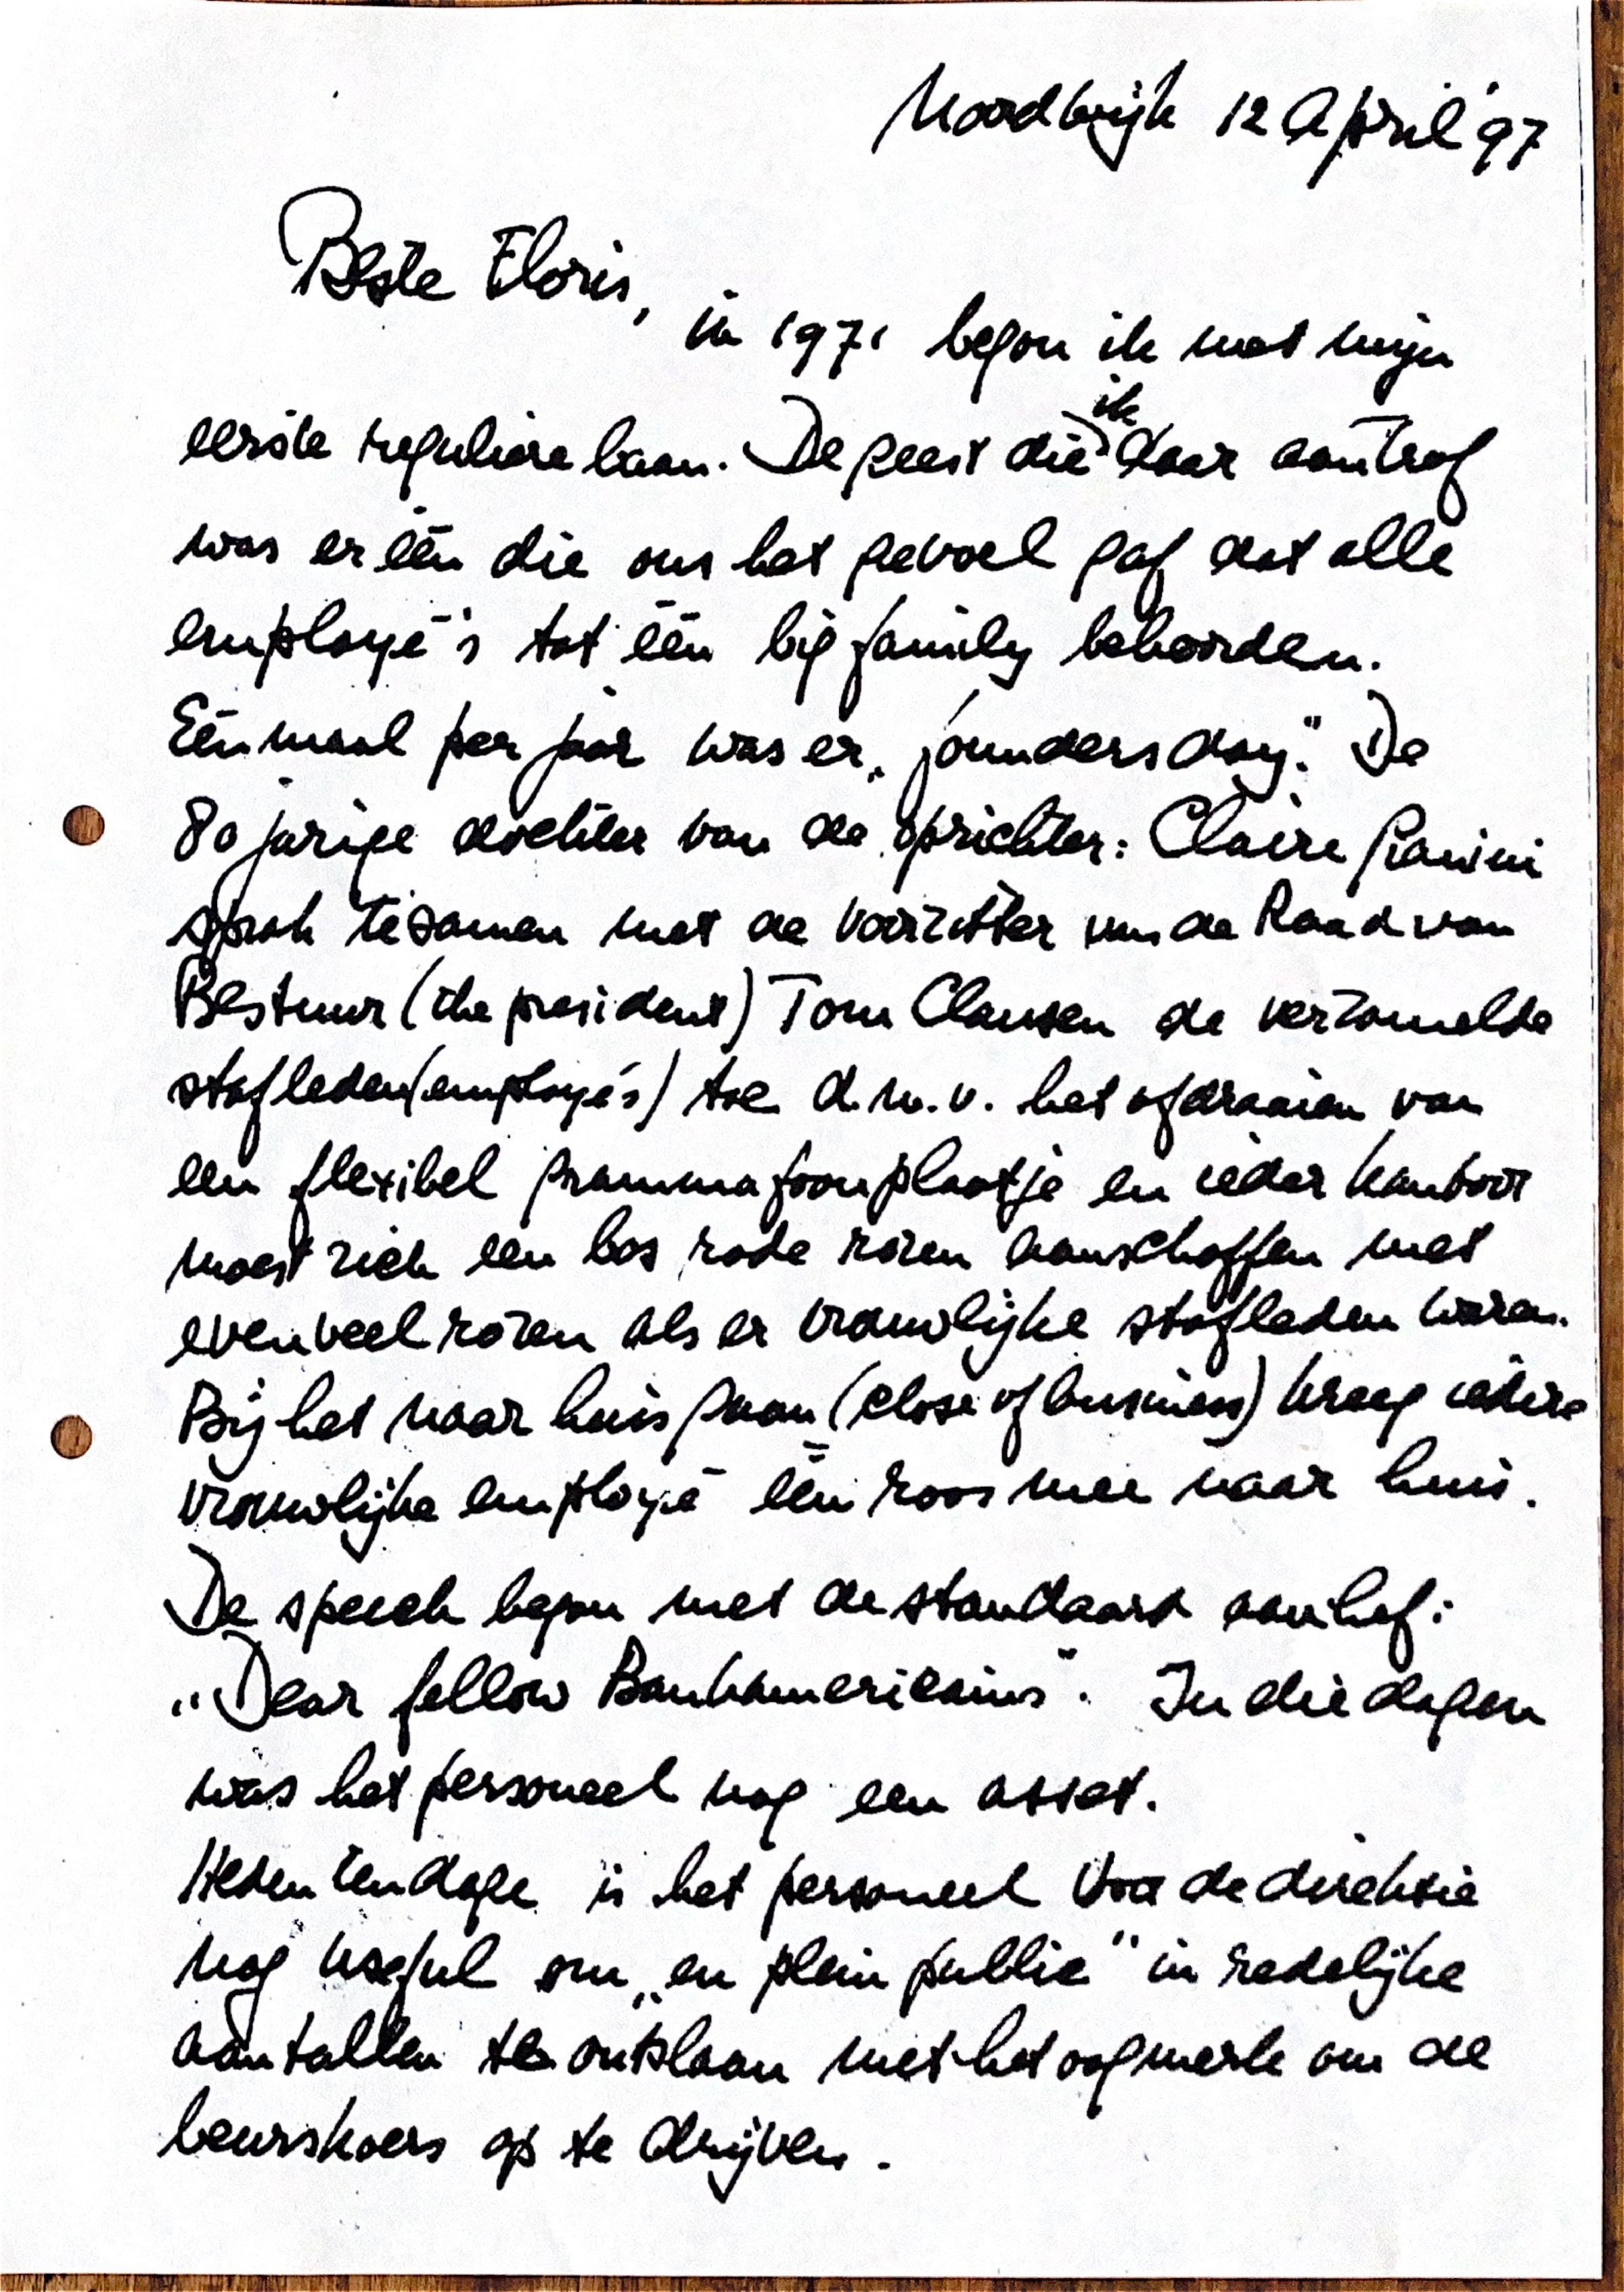 Noordwijk 12 April '97
Beste Floris,
in 1971 begon ik met mijn
eerste reguliere baan. De geest die ik daar aantrof
was er één die ons het gevoel gaf dat alle
employé's tot één big family behoorden.
Eénmaal per jaar was er „foundersday". De
80 jarige dochter van de oprichter: Claire Gianini
sprak tesamen met de voorzitter van de Raad van
Bestuur (the president) Tom Clausen de verzamelde
stafleden (employé's) toe d.m.v. het afdraaien van
een flexibel grammafoonplaatje en ieder kantoor
moest zich een bos rode rozen aanschaffen met
evenveel rozen als er vrouwlijke stafleden waren.
Bij het naar huis gaan (close of business) kreeg iedere
vrouwlijke employé één roos mee naar huis.
De speech begon met de standaard aanhef:
„Dear fellow Bankamericains". In die dagen
was het personeel nog een asset.
Hedentendage is het personeel voor de direktie
nog useful om „en plein public" in redelijke
aantallen te ontslaan met het oogmerk om de
beurskoers op te drijven.